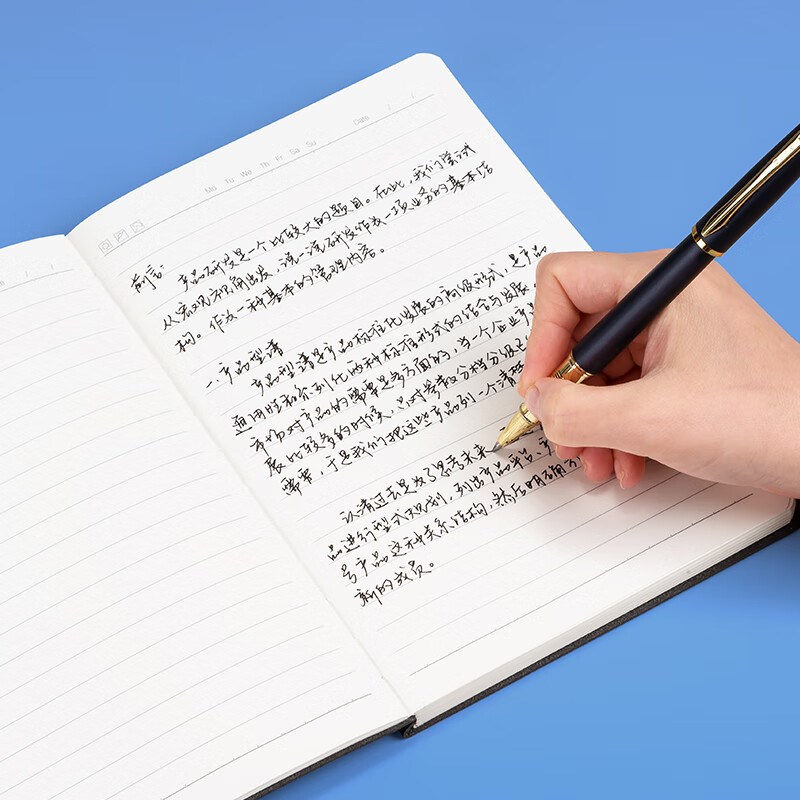 Mo Tu We Th Fr Sa Su
Date / /
前言:
产品研发是一个比较大的题目。在此,我们尝试
从宏观视角出发,说一说研发作为一项业务的基本结
构。作为一种基本的管理内容。
一.产品型谱
产品型谱是产品标准化发展的高级形式,是产品
通用性和系列化两种标准形式的结合与发展
市场对产品的需要是多方面的,当一个企业产
展比较多的时候,品对参数分档分级
需要,于是我们把这些产品列一个清
认清过去是为了思考未来
品进行型式规划,列出产品平台、产
号产品这种关系结构,然后明确
新的成员。